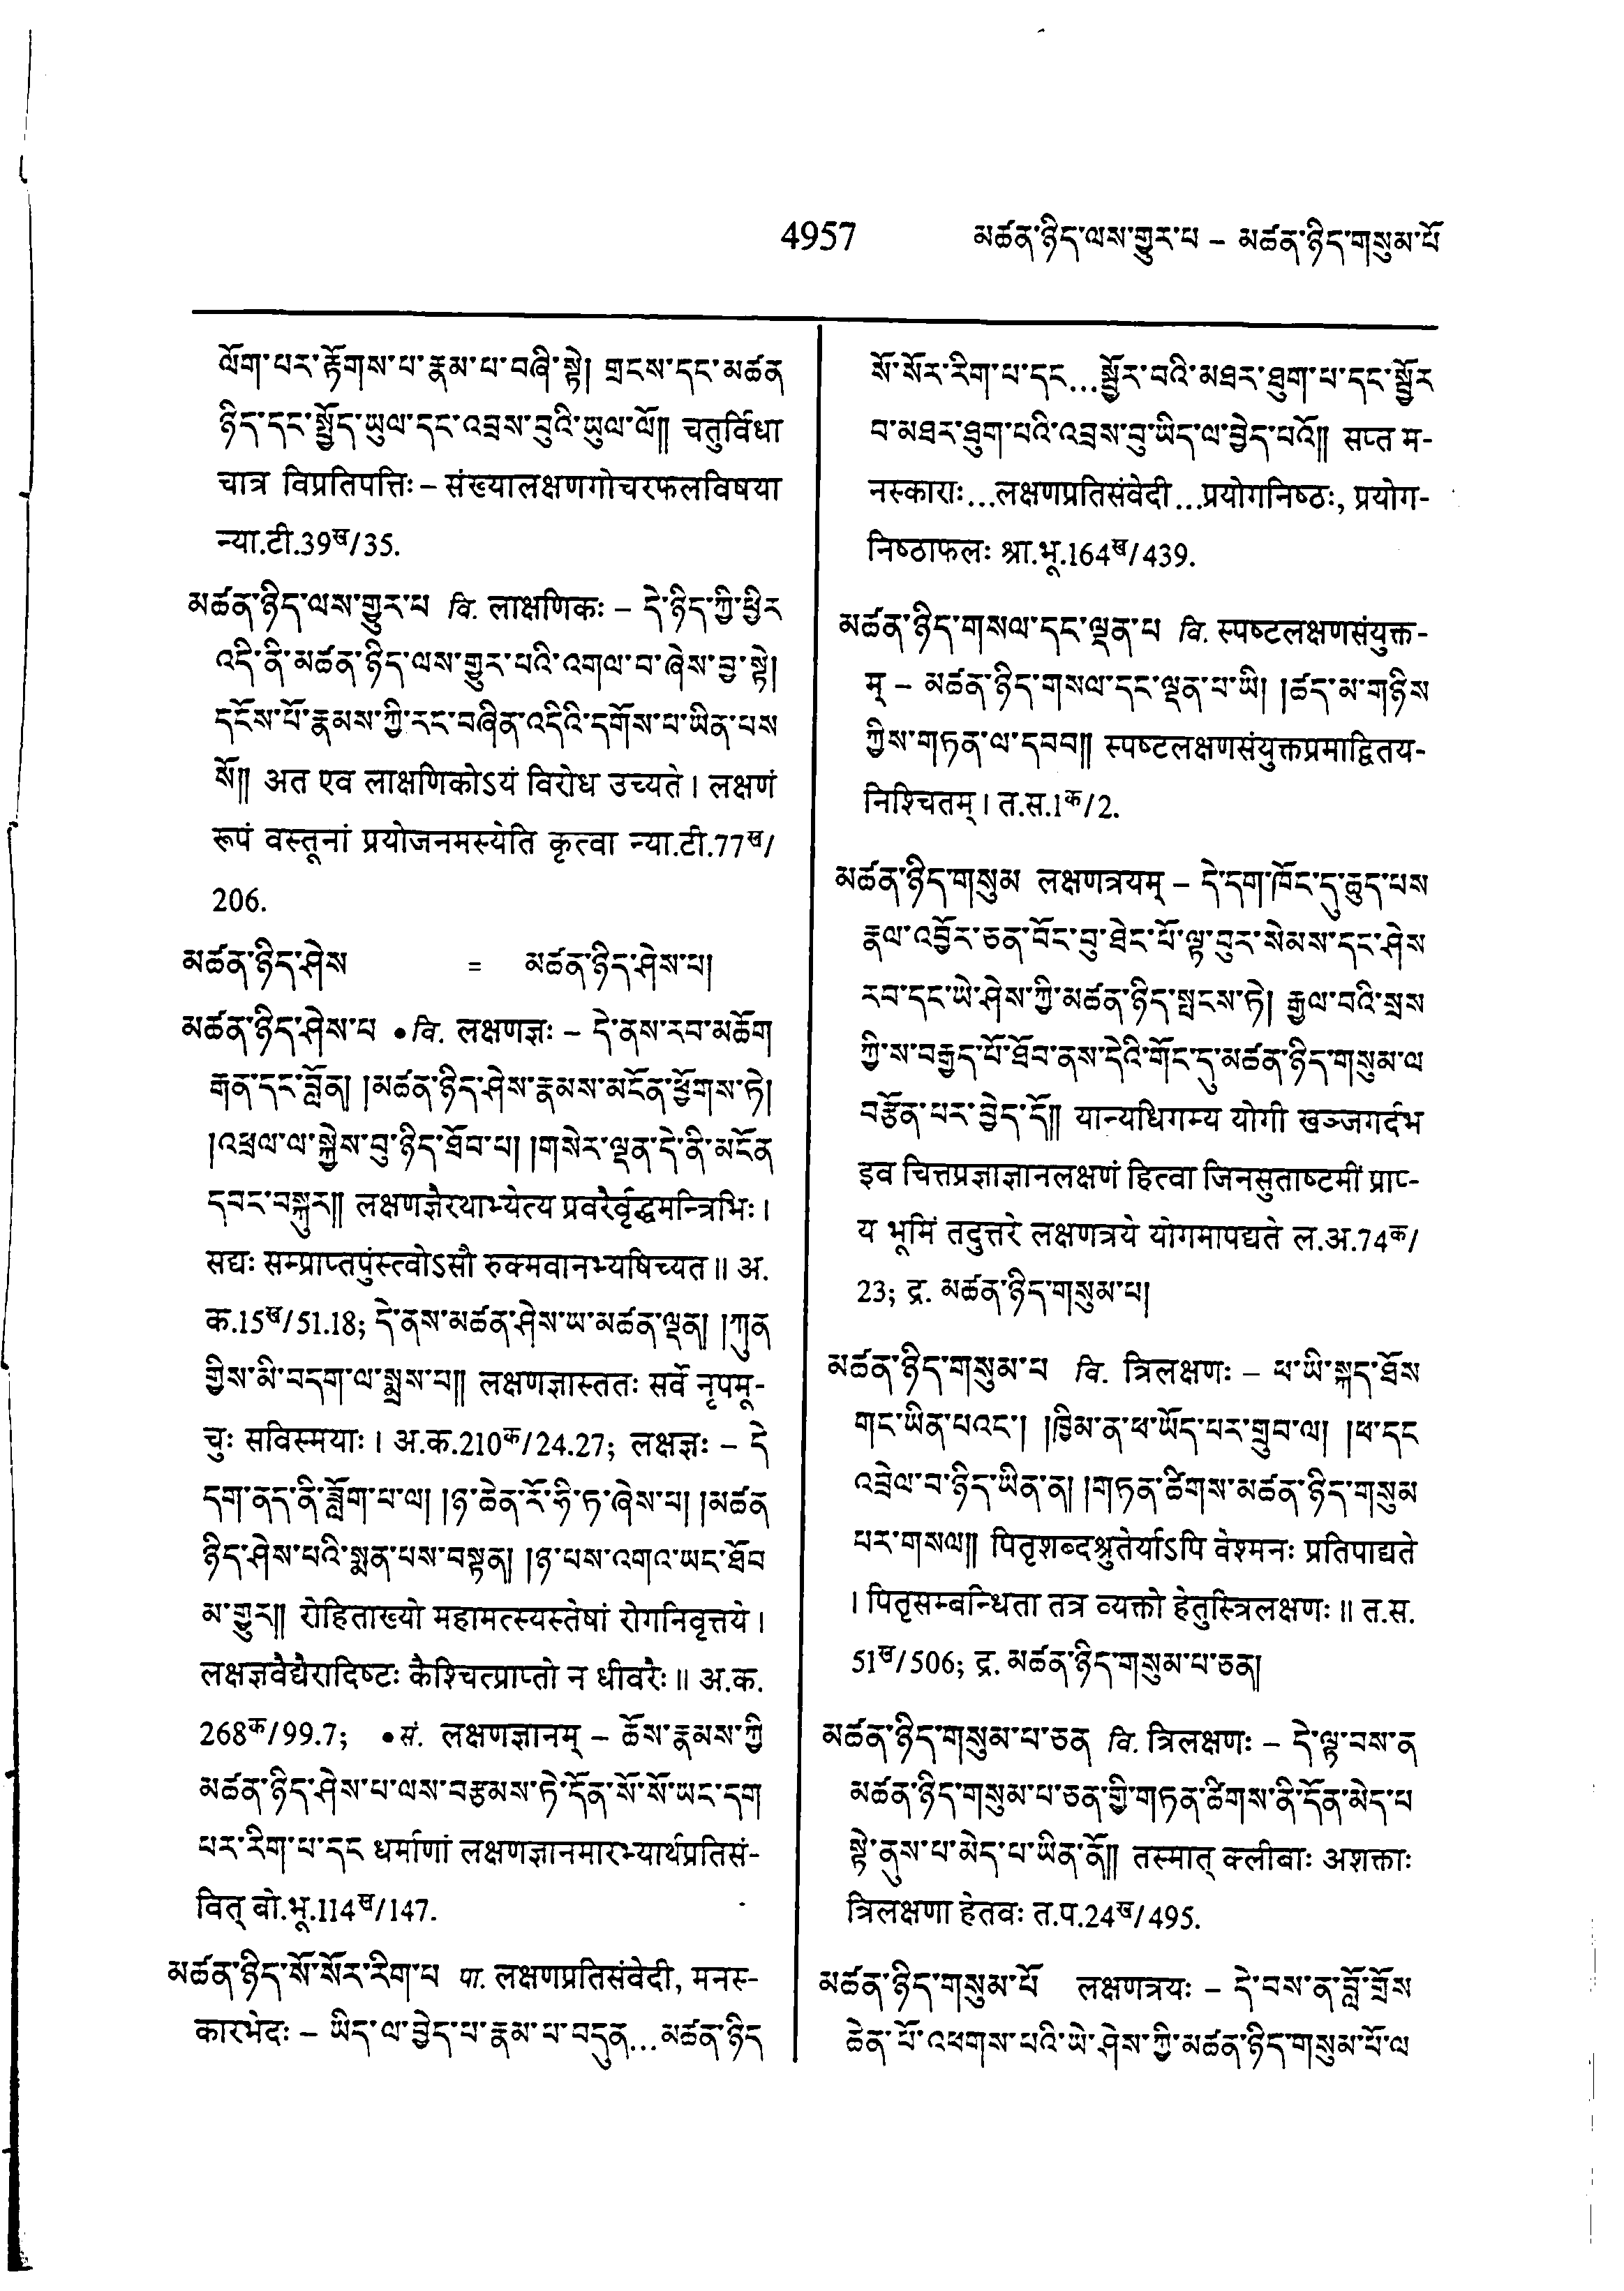 4957 མཚན་ཉིད་ལས་གྱུར་པ – མཚན་ཉིད་གསུམ་པོ
ལོག་པར་རྟོགས་པ་རྣམ་པ་བཞི་སྟེ། གྲངས་དང་མཚན
ཉིད་དང་སྤྱོད་ཡུལ་དང་འབྲས་བུའི་ཡུལ་ལོ།། चतुर्विधा
चात्र विप्रतिपत्तिः – संख्यालक्षणगोचरफलविषया
न्या.टी.39ख/35.
མཚན་ཉིད་ལས་གྱུར་པ वि. लाक्षणिकः – དེ་ཉིད་ཀྱི་ཕྱིར
འདི་ནི་མཚན་ཉིད་ལས་གྱུར་པའི་འགལ་བ་ཞེས་བྱ་སྟེ།
དངོས་པོ་རྣམས་ཀྱི་རང་བཞིན་འདིའི་དགོས་པ་ཡིན་པས
སོ།། अत एव लाक्षणिकोऽयं विरोध उच्यते । लक्षणं
रूपं वस्तूनां प्रयोजनमस्येति कृत्वा न्या.टी.77ख/
206.
མཚན་ཉིད་ཤེས = མཚན་ཉིད་ཤེས་པ།
མཚན་ཉིད་ཤེས་པ •वि. लक्षणज्ञः – དེ་ནས་རབ་མཆོག
རྒན་དང་བློན། །མཚན་ཉིད་ཤེས་རྣམས་མངོན་ཕྱོགས་ཏེ།
།འཕྲལ་ལ་སྐྱེས་བུ་ཉིད་ཐོབ་པ། །གསེར་ལྡན་དེ་ནི་མངོན
དབང་བསྐུར།། लक्षणज्ञैरथाभ्येत्य प्रवरैर्वृद्धमन्त्रिभिः ।
सद्यः सम्प्राप्तपुंस्त्वोऽसौ रुक्मवानभ्यषिच्यत ॥ अ.
क.15ख/51.18; དེ་ནས་མཚན་ཤེས་ཡ་མཚན་ལྡན། །ཀུན
གྱིས་མི་བདག་ལ་སྨྲས་པ།། लक्षणज्ञास्ततः सर्वे नृपमू-
चुः सविस्मयाः । अ.क.210क/24.27; लक्षज्ञः – དེ
དག་ནད་ནི་བློག་པ་ལ། །ཉ་ཆེན་རོ་ཧི་ཏ་ཞེས་པ། །མཚན
ཉིད་ཤེས་པའི་སྨན་པས་བསྟན། །ཉ་པས་འགའ་ཡང་ཐོབ
མ་གྱུར།། रोहिताख्यो महामत्स्यस्तेषां रोगनिवृत्तये ।
लक्षज्ञवैद्यैरादिष्टः कैश्चित्प्राप्तो न धीवरैः ॥ अ.क.
268क/99.7; •सं. लक्षणज्ञानम् – ཆོས་རྣམས་ཀྱི
མཚན་ཉིད་ཤེས་པ་ལས་བརྩམས་ཏེ་དོན་སོ་སོ་ཡང་དག
པར་རིག་པ་དང धर्माणां लक्षणज्ञानमारभ्यार्थप्रतिसं-
वित् बो.भू.114ख/147.
མཚན་ཉིད་སོ་སོར་རིག་པ पा. लक्षणप्रतिसंवेदी, मनस्-
कारभेदः – ཡིད་ལ་བྱེད་པ་རྣམ་པ་བདུན...མཚན་ཉིད
སོ་སོར་རིག་པ་དང...སྦྱོར་བའི་མཐར་ཐུག་པ་དང་སྦྱོར
བ་མཐར་ཐུག་པའི་འབྲས་བུ་ཡིད་ལ་བྱེད་པའོ།། सप्त म-
नस्काराः...लक्षणप्रतिसंवेदी...प्रयोगनिष्ठः, प्रयोग-
निष्ठाफलः श्रा.भू.164ख/439.
མཚན་ཉིད་གསལ་དང་ལྡན་པ वि. स्पष्टलक्षणसंयुक्त-
म् – མཚན་ཉིད་གསལ་དང་ལྡན་པ་ཡི། །ཚད་མ་གཉིས
ཀྱིས་གཏན་ལ་དབབ།། स्पष्टलक्षणसंयुक्तप्रमाद्वितय-
निश्चितम् । त.स.1क/2.
མཚན་ཉིད་གསུམ लक्षणत्रयम् – དེ་དག་ཁོང་དུ་ཆུད་པས
རྣལ་འབྱོར་ཅན་བོང་བུ་ཐེང་པོ་ལྟ་བུར་སེམས་དང་ཤེས
རབ་དང་ཡེ་ཤེས་ཀྱི་མཚན་ཉིད་སྤངས་ཏེ། རྒྱལ་བའི་སྲས
ཀྱི་ས་བརྒྱད་པོ་ཐོབ་ནས་དེའི་གོང་དུ་མཚན་ཉིད་གསུམ་ལ
བརྩོན་པར་བྱེད་དོ།། यान्यधिगम्य योगी खञ्जगर्दभ
इव चित्तप्रज्ञाज्ञानलक्षणं हित्वा जिनसुताष्टमीं प्राप्-
य भूमिं तदुत्तरे लक्षणत्रये योगमापद्यते ल.अ.74क/
23; द्र. མཚན་ཉིད་གསུམ་པ།
མཚན་ཉིད་གསུམ་པ वि. त्रिलक्षणः – ཕ་ཡི་སྐད་ཐོས
གང་ཡིན་པའང་། །ཁྱིམ་ན་ཕ་ཡོད་པར་གྲུབ་ལ། །ཕ་དང
འབྲེལ་བ་ཉིད་ཡིན་ན། །གཏན་ཚིགས་མཚན་ཉིད་གསུམ
པར་གསལ།། पितृशब्दश्रुतेर्याऽपि वेश्मनः प्रतिपाद्यते
। पितृसम्बन्धिता तत्र व्यक्तो हेतुस्त्रिलक्षणः ॥ त.स.
51ख/506; द्र. མཚན་ཉིད་གསུམ་པ་ཅན།
མཚན་ཉིད་གསུམ་པ་ཅན वि. त्रिलक्षणः – དེ་ལྟ་བས་ན
མཚན་ཉིད་གསུམ་པ་ཅན་གྱི་གཏན་ཚིགས་ནི་དོན་མེད་པ
སྟེ་ནུས་པ་མེད་པ་ཡིན་ནོ།། तस्मात् क्लीबाः अशक्ताः
त्रिलक्षणा हेतवः त.प.24ख/495.
མཚན་ཉིད་གསུམ་པོ लक्षणत्रयः – དེ་བས་ན་བློ་གྲོས
ཆེན་པོ་འཕགས་པའི་ཡེ་ཤེས་ཀྱི་མཚན་ཉིད་གསུམ་པོ་ལ